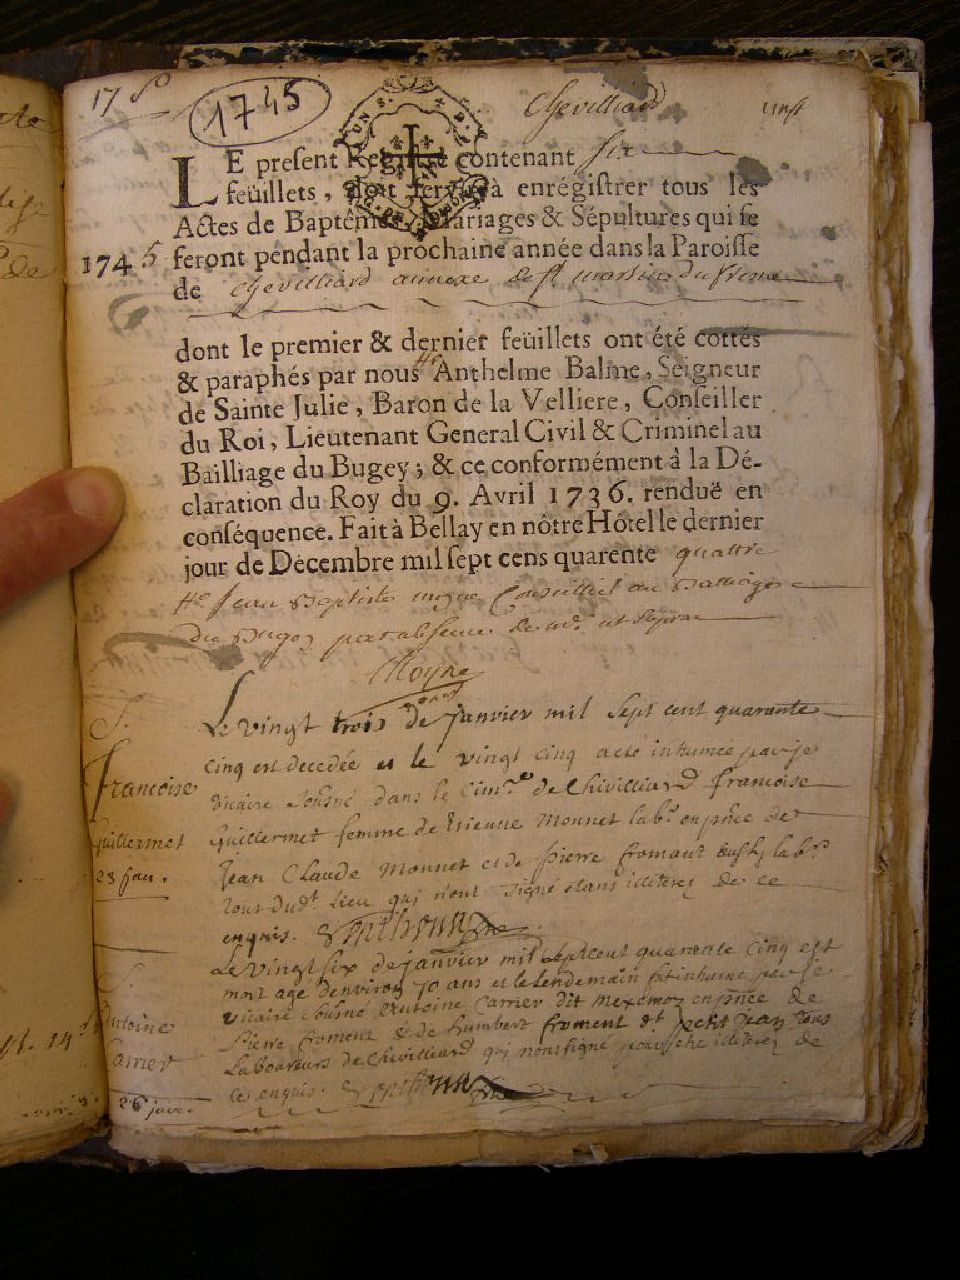 1745
Chevilliard
LE present Registre contenant six
feüillets, doit servir à enrégistrer tous les
Actes de Baptêmes, Mariages & Sépultures qui se
feront pendant la prochaine année dans la Paroisse
1745
de Chevilliard annexe de st martin du fresne
dont le premier & dernier feüillets ont été cottés
& paraphés par nous Anthelme Balme, Seigneur
de Sainte Julie, Baron de la Velliere, Conseiller
du Roi, Lieutenant General Civil & Criminel au
Bailliage du Bugey; & ce conformément à la Dé-
claration du Roy du 9. Avril 1736. renduë en
conséquence. Fait à Bellay en nôtre Hôtel le dernier
jour de Décembre mil sept cens quarente quattre
Jean Baptiste Conseiller au Balliage
du Bugey par absence de
S.
Françoise
Guillermet
23 jan.
Le vingt trois de janvier mil sept cent quarante
cinq est decedée et le vingt cinq a eté inhumée par je
vicaire sousné dans le cim.re de Chivilliard francoise
Guillermet femme de Etienne Monnet lab.r en pnce de
Jean Claude Monnet et de pierre froment lab.rs
tous dud.t lieu qui n'ont signé etans illiterez de ce
enquis.
S.
Antoine
Carrier
26 janv.
Le vingt six de janvier mil sept cent quarente cinq est
mort agé d'environ 70 ans et le lendemain fut inhumé par je
vicaire sousné Antoine Carrier dit en pnce de
pierre froment & de humbert froment d.t petit jean tous
laboureurs de Chivilliard qui n'ont signé pour être illiterez de
ce enquis.